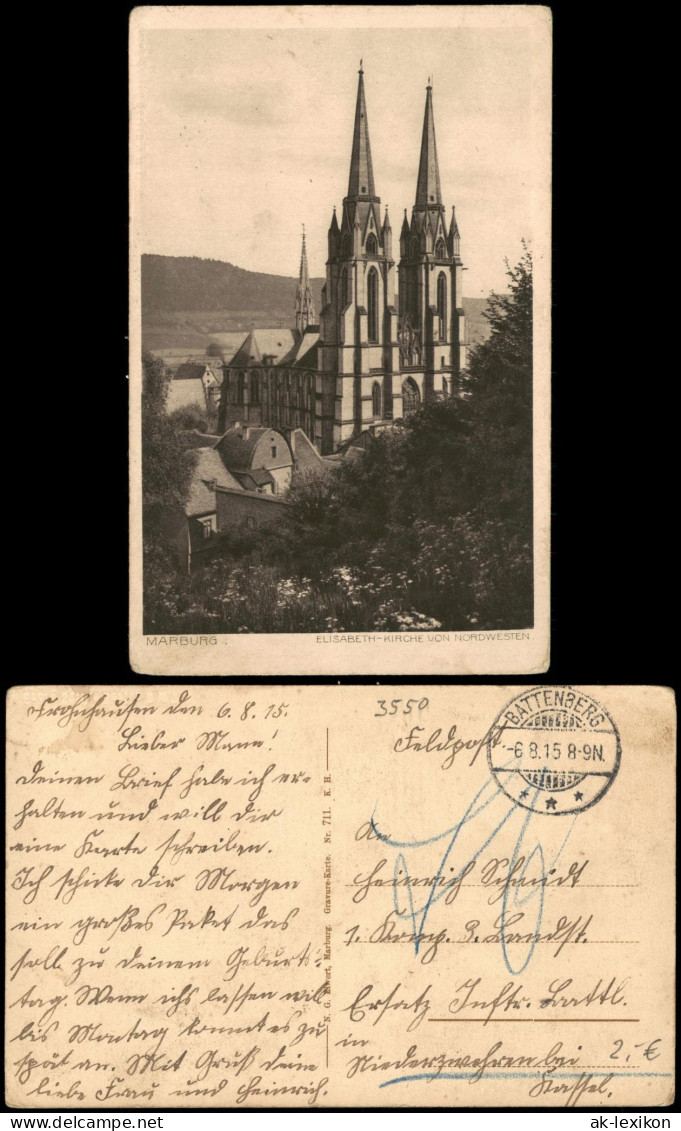 MARBURG.
ELISABETH-KIRCHE VON NORDWESTEN
Frohnhausen den 6.8.15.
Lieber Mann!
Deinen Brief habe ich er-
halten und will dir
eine Karte schreiben.
Ich schicke dir Morgen
ein großes Paket das
soll zu deinem Geburts-
tag. Wenn ichs lassen will
bis Montag kommt es zu
spät an. Mit Gruß deine
liebe Frau und Heinrich.
N. G. Elwert, Marburg. Gravure-Karte. Nr. 711. K. H.
3550
Feldpost
BATTENBERG
-6.8.15 8-9N.
* * *
An
Heinrich Schmidt
1. Komp. 3. Landst.
Ersatz Inftr. Battl.
in
Niederzwehren bei
Kassel.
2,- €
ak-lexikon